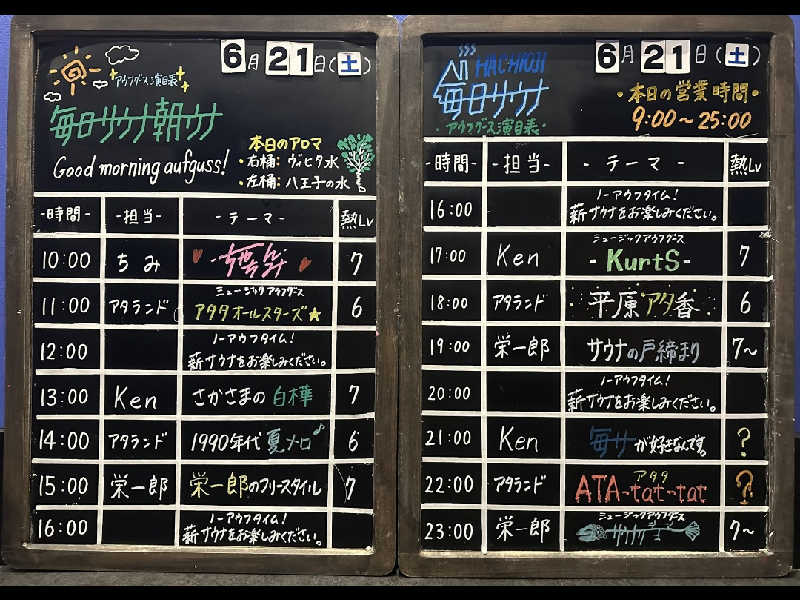 6月21日(土)
アウフグース演目表
毎日サウナ朝ウナ
Good morning aufguss!
本日のアロマ
・右桶: ヴィヒタ水
・左桶: 八王子の水
-時間- -担当- -テーマ- 熱Lv
10:00 ちみ 7
ミュージックアウフグース
11:00 アタランド アタタオールスターズ★ 6
ノーアウフタイム!
12:00 薪サウナをお楽しみください。
13:00 Ken さかさまの白樺 7
14:00 アタランド 1990年代夏メロ♪ 6
15:00 栄一郎 栄一郎のフリースタイル 7
ノーアウフタイム!
16:00 薪サウナをお楽しみください。
6月21日(土)
HACHIOJI
毎日サウナ
・アウフグース演目表・
・本日の営業時間・
9:00〜25:00
-時間- -担当- -テーマ- 熱Lv
ノーアウフタイム!
16:00 薪サウナをお楽しみください。
ミュージックアウフグース
17:00 Ken -KurtS- 7
18:00 アタランド 平原アタ香 6
19:00 栄一郎 サウナの戸締まり 7〜
ノーアウフタイム!
20:00 薪サウナをお楽しみください。
21:00 Ken 毎サが好きなんです。 ?
アタタ
22:00 アタランド ATA-tat-tat ?
ミュージックアウフグース
23:00 栄一郎 7〜